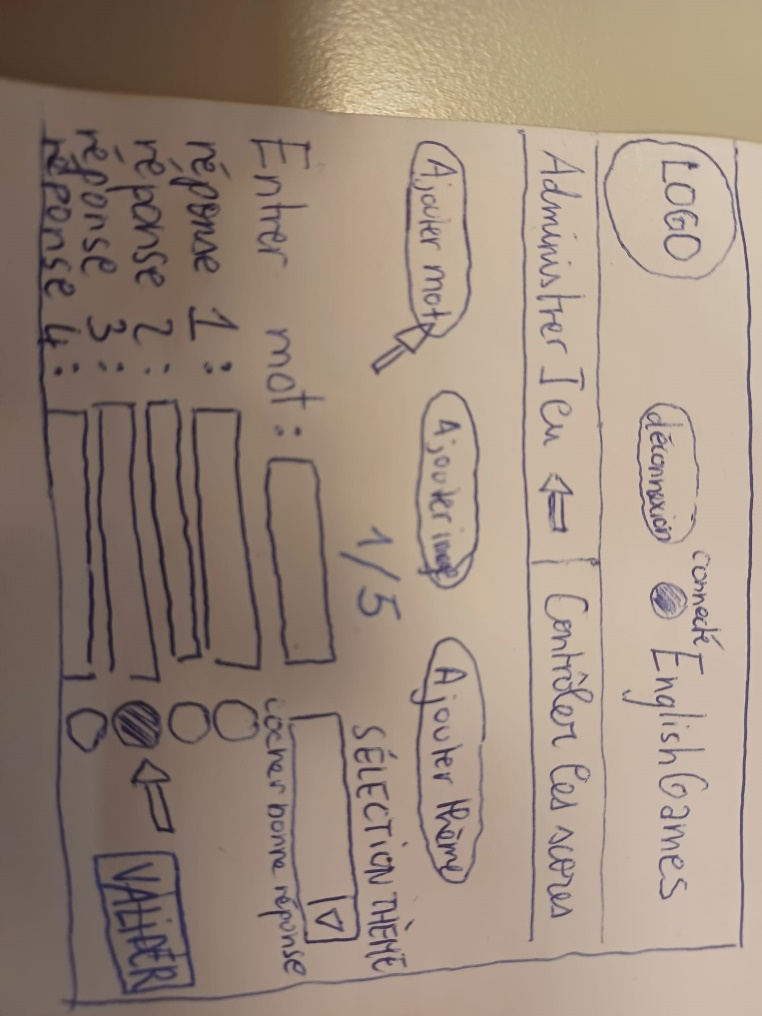 LOGO
déconnexion
connecté
EnglishGames
Administrer Jeu
Contrôler les scores
Ajouter mot
Ajouter image
Ajouter thème
1/5
SÉLECTION THÈME
Entrer mot :
cocher bonne réponse
réponse 1 :
réponse 2 :
réponse 3 :
réponse 4 :
VALIDER